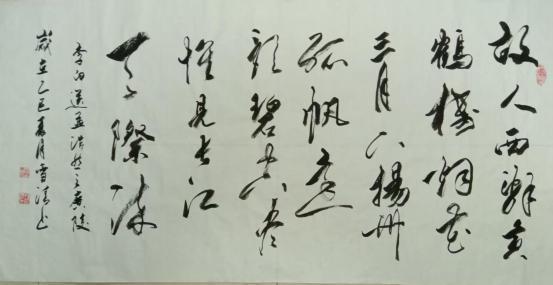 故人西辭黄
鶴樓烟花
三月下揚州
孤帆遠
影碧空尽
惟見长江
天際流
李白送孟浩然之廣陵
歲在乙巳春月雪清书